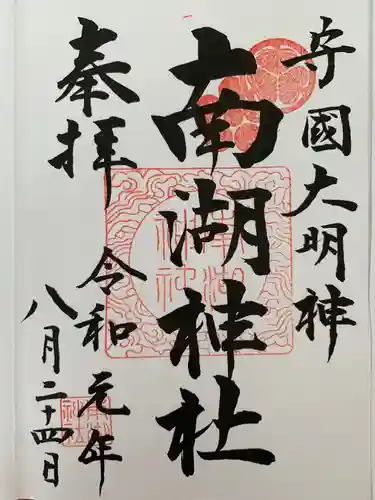 守國大明神
南湖神社
奉拝
令和元年
八月二十四日